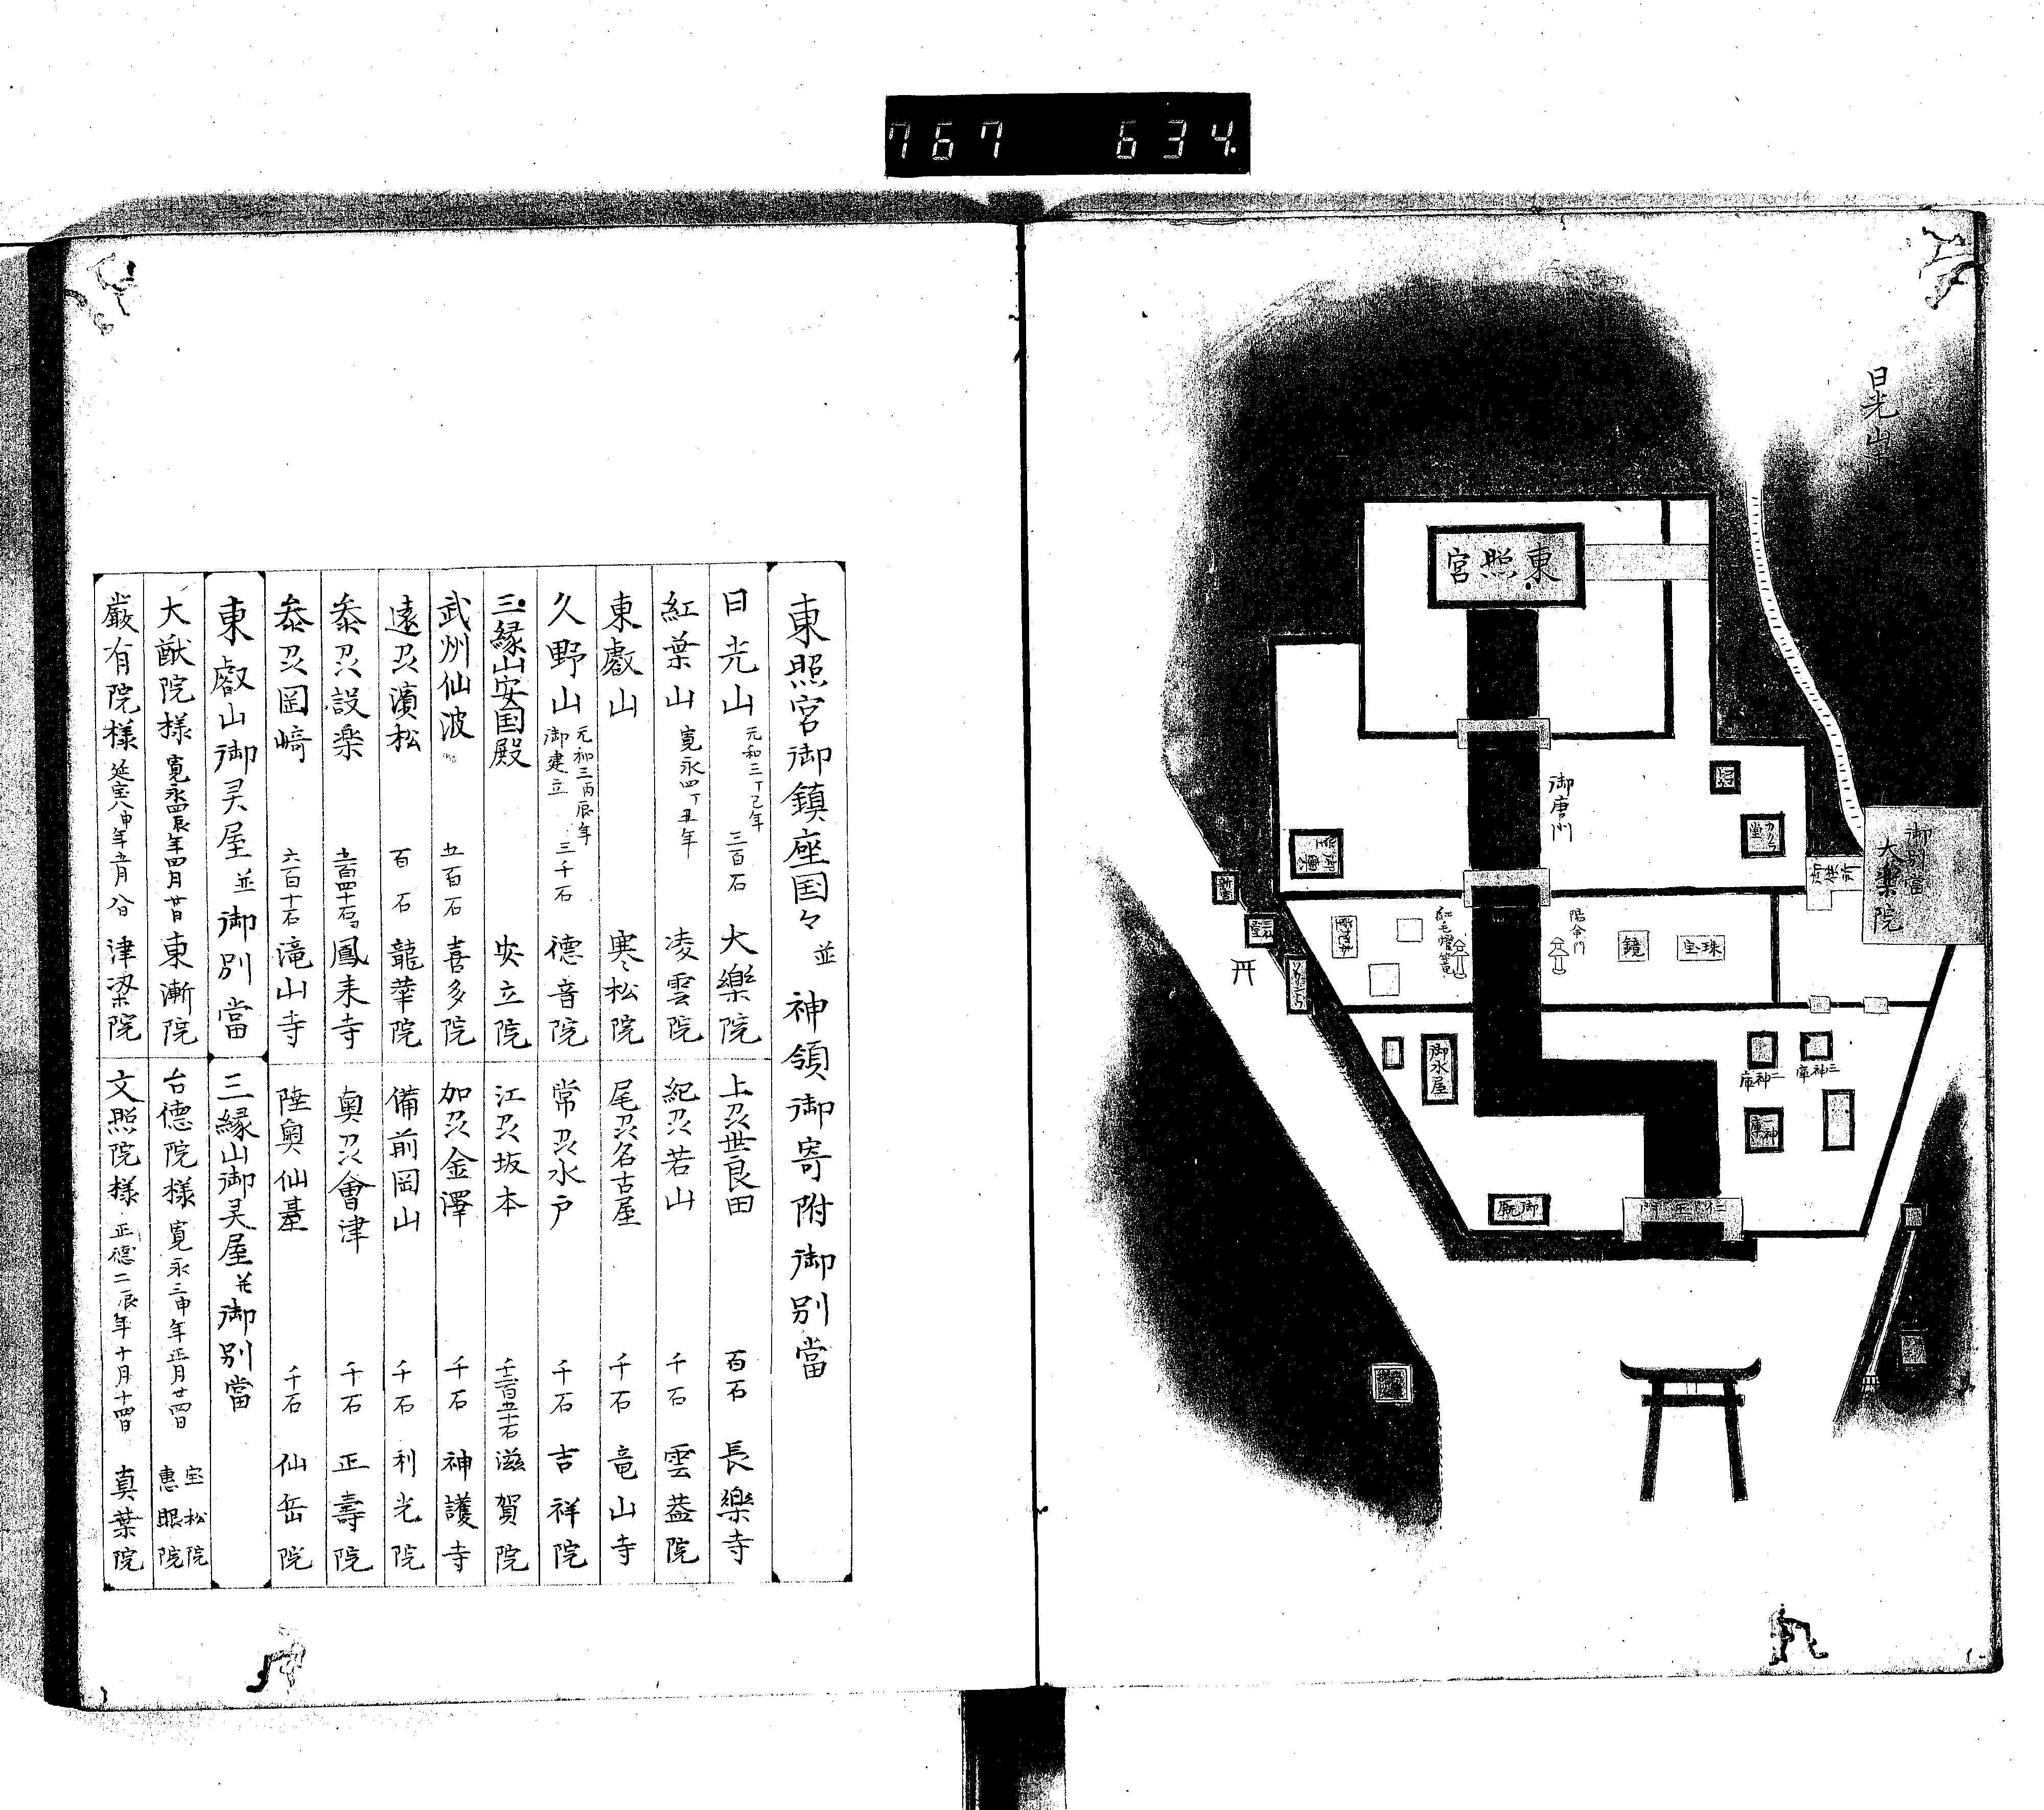 767 634
日光山
東照宮
御唐門
御別當
大樂院
陽命門
紅毛燈籠
鏡
宝珠
御水屋
二神庫
三神庫
御厩
仁王門
東照宮御鎮座国々並神領御寄附御別當
日光山 元和三丁巳年 三百石 大樂院
紅葉山 寛永四丁丑年 凌雲院
東叡山 寒松院
久野山 元和三丙辰年御建立 三千石 德音院
三縁山安国殿 安立院
武州仙波 五百石 喜多院
遠刕濱松 百石 龍華院
叅刕設楽 鳳来寺
叅刕岡崎 六百十石 滝山寺
東叡山御灵屋並御別當
大猷院様 東漸院
嚴有院様 津梁院
上刕世良田 百石 長樂寺
紀刕若山 千石 雲蓋院
尾刕名古屋 千石 竜山寺
常刕水戸 千石 吉祥院
江刕坂本 滋賀院
加刕金澤 千石 神護寺
備前岡山 千石 利光院
奥刕會津 千石 正壽院
陸奥仙臺 千石 仙岳院
三縁山御灵屋並御別當
台德院様 寛永三申年正月廿四日 宝松院 惠眼院
文照院様 正德二辰年十月十四日 真葉院